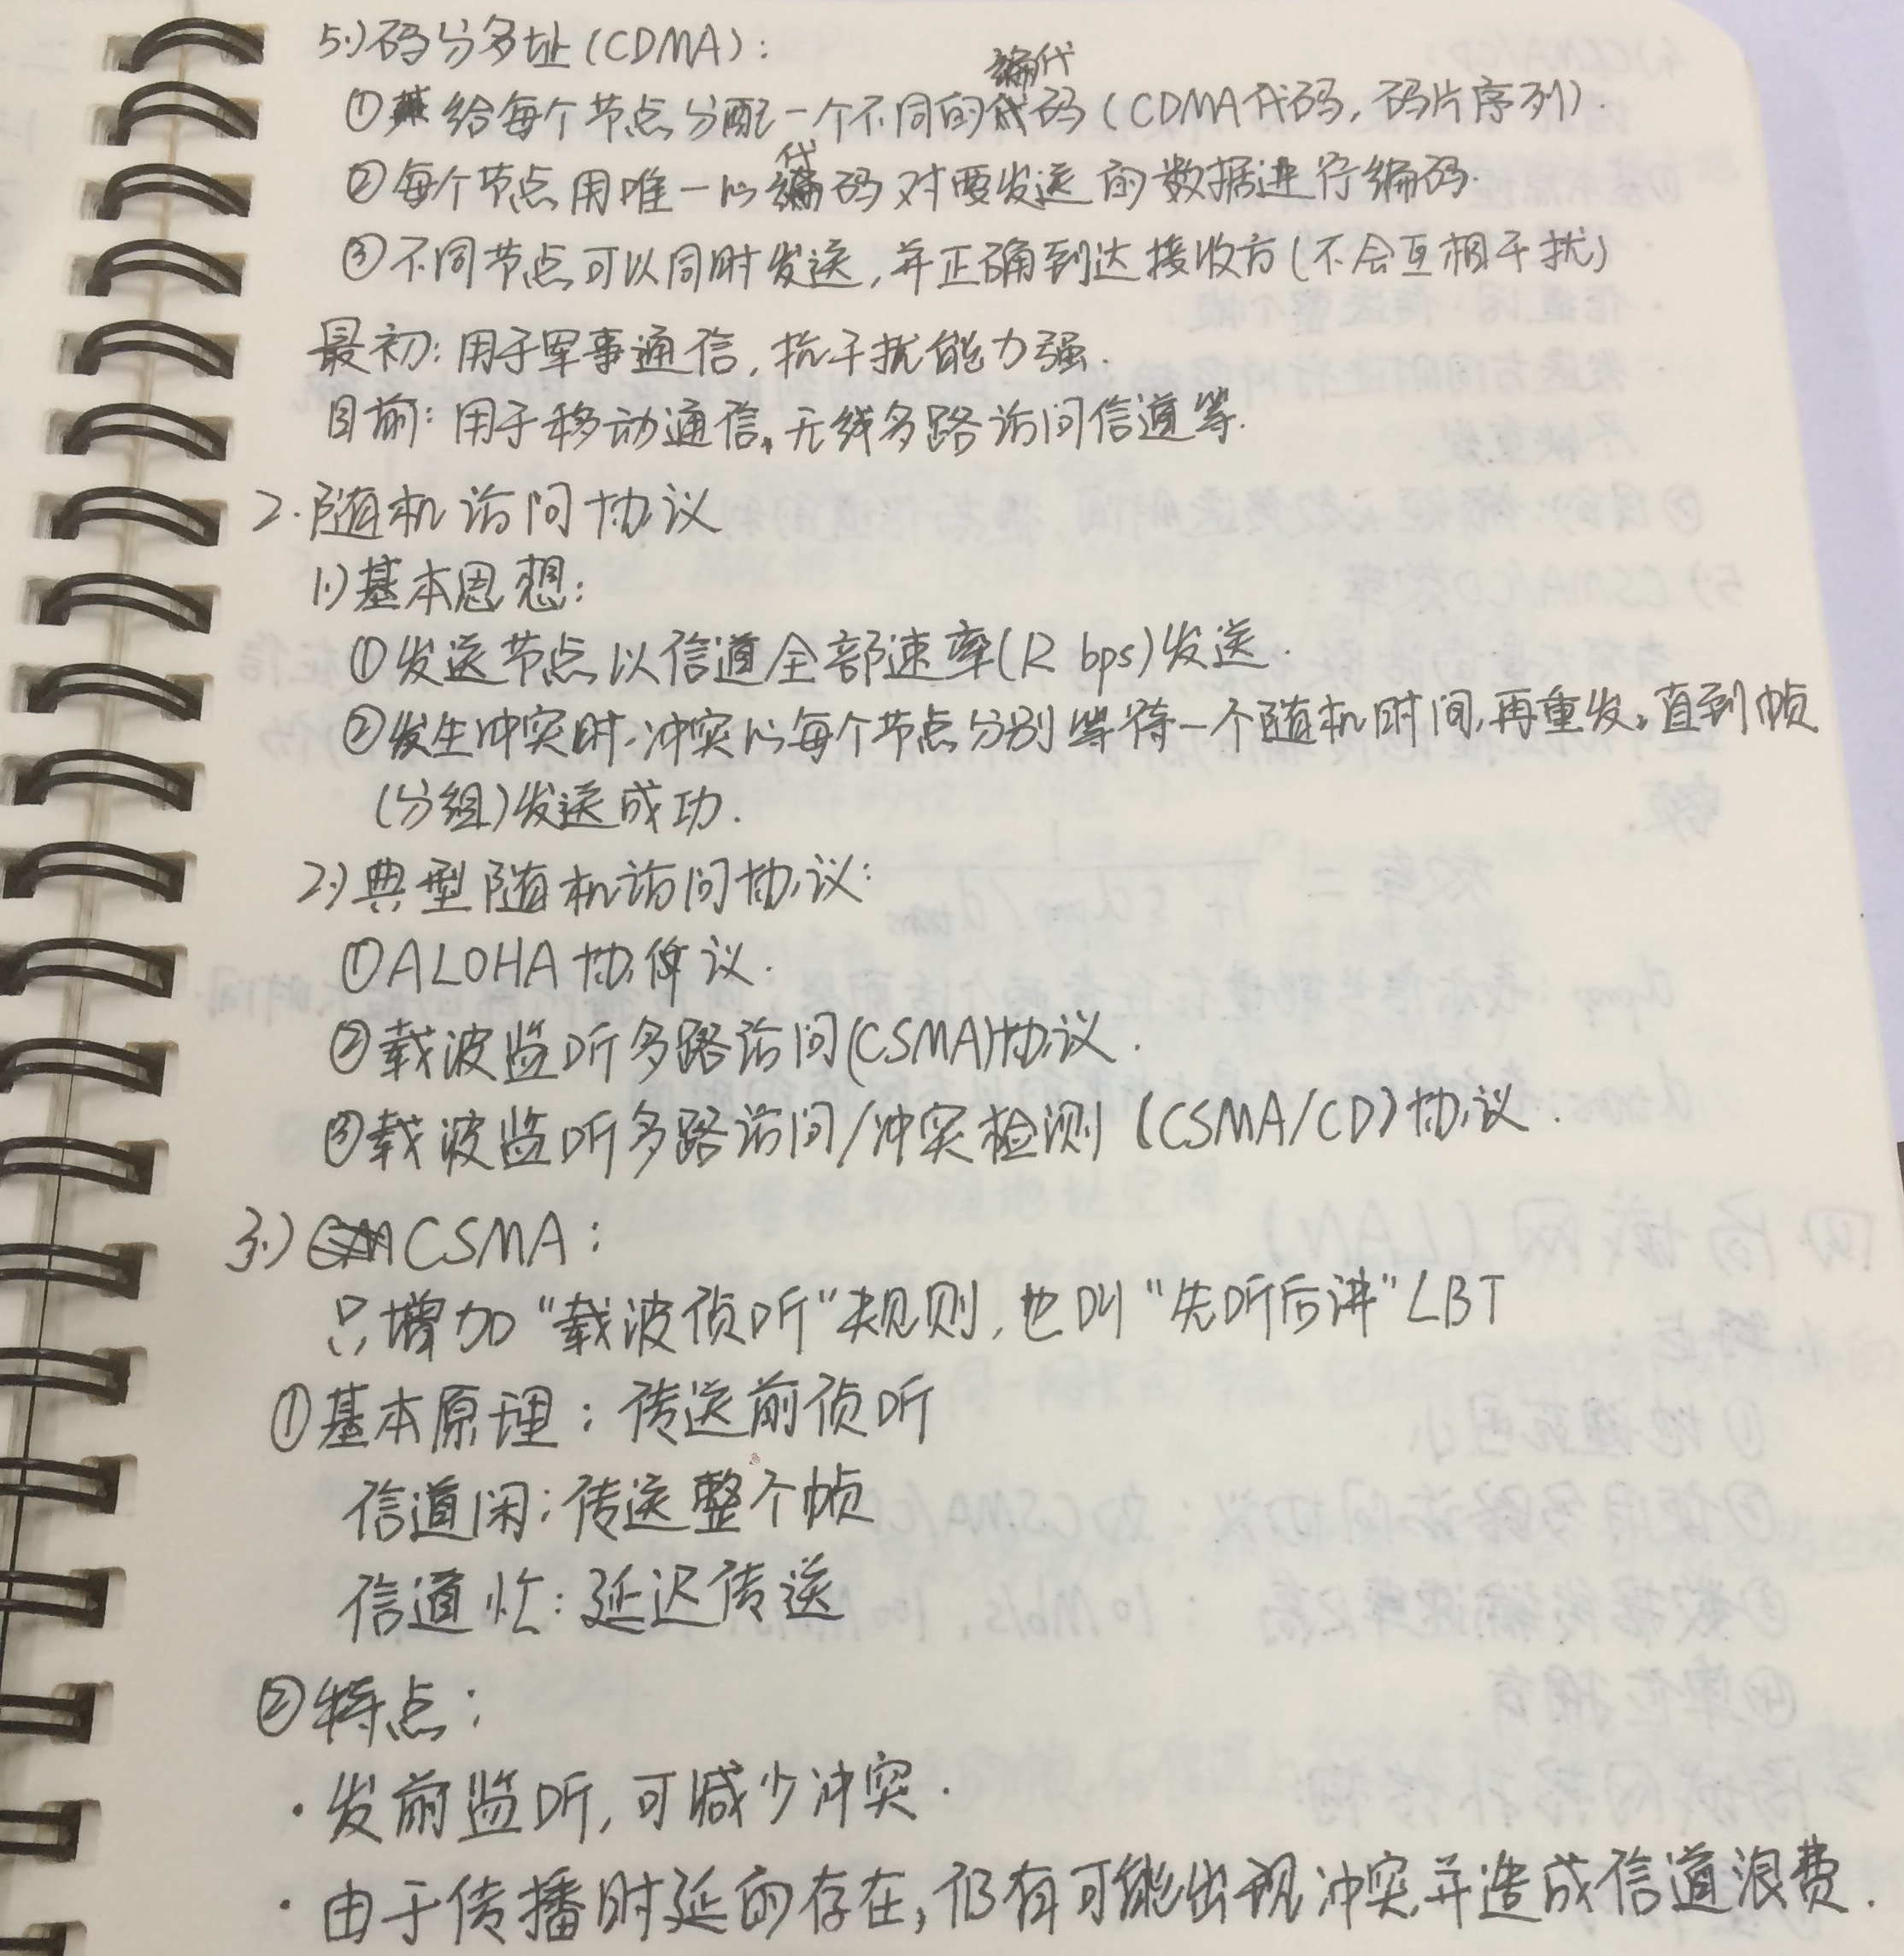 5.)码分多址(CDMA):
①给每个节点分配一个不同的编代码(CDMA代码,码片序列).
②每个节点用唯一的代码对要发送的数据进行编码.
③不同节点可以同时发送,并正确到达接收方(不会互相干扰)
最初:用于军事通信,抗干扰能力强.
目前:用于移动通信,无线多路访问信道等.
2.随机访问协议
1.)基本思想:
①发送节点以信道全部速率(R bps)发送.
②发生冲突时,冲突的每个节点分别等待一个随机时间,再重发,直到帧
(分组)发送成功.
2.)典型随机访问协议:
①ALOHA协议.
②载波监听多路访问(CSMA)协议.
③载波监听多路访问/冲突检测(CSMA/CD)协议.
3.)CSMA:
只增加"载波侦听"规则,也叫"先听后讲"LBT
①基本原理:传送前侦听
信道闲:传送整个帧
信道忙:延迟传送
②特点:
·发前监听,可减少冲突.
·由于传播时延的存在,仍有可能出现冲突,并造成信道浪费.